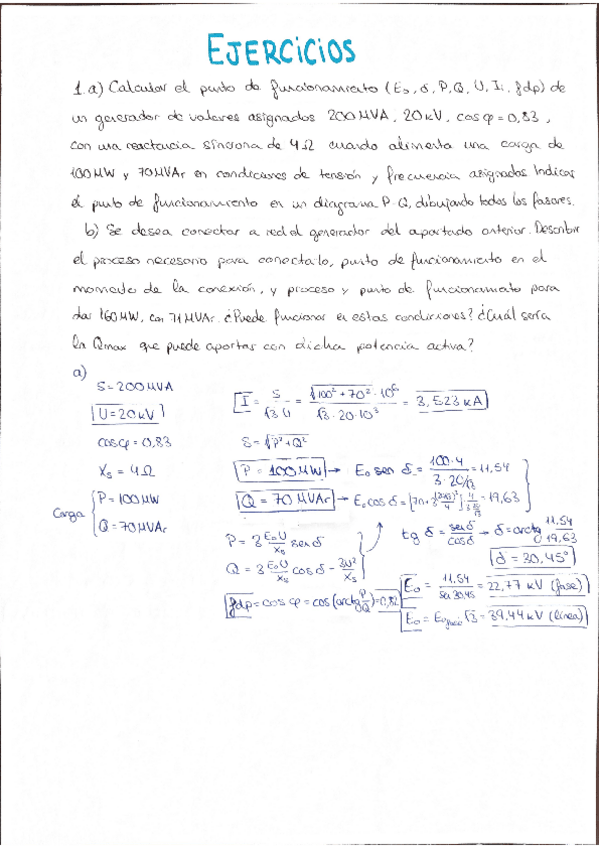 EJERCICIOS
1. a) Calcular el punto de funcionamiento (E₀, δ, P, Q, U, I, fdp) de
un generador de valores asignados 200 MVA, 20 kV, cos φ = 0,83,
con una reactancia síncrona de 4 Ω cuando alimenta una carga de
100 MW y 70 MVAr en condiciones de tensión y frecuencia asignadas. Indicar
el punto de funcionamiento en un diagrama P-Q, dibujando todos los fasores.
b) Se desea conectar a red el generador del apartado anterior. Describir
el proceso necesario para conectarlo, punto de funcionamiento en el
momento de la conexión, y proceso y punto de funcionamiento para
dar 160 MW, con 71 MVAr. ¿Puede funcionar en estas condiciones? ¿Cuál sería
la Qmax que puede aportar con dicha potencia activa?
a)
S = 200 MVA
U = 20 kV
cos φ = 0,83
Xs = 4 Ω
Carga { P = 100 MW
Q = 70 MVAr
I = S / √3 U = √100² + 70² · 10⁶ / √3 · 20 · 10³ = 3,523 kA
S = √P² + Q²
P = 100 MW → E₀ sen δ = 100 · 4 / 3 · 20/√3 = 11,54
Q = 70 MVAr → E₀ cos δ = = 19,63
P = 3 E₀U/Xs sen δ
Q = 3 E₀U/Xs cos δ - 3U²/Xs
tg δ = sen δ / cos δ → δ = arctg 11,54 / 19,63
δ = 30,45°
fdp = cos φ = cos (arctg P/Q) = 0,82
E₀ = 11,54 / sen 30,45 = 22,77 kV (fase)
E₀ = E₀fase √3 = 39,44 kV (línea)